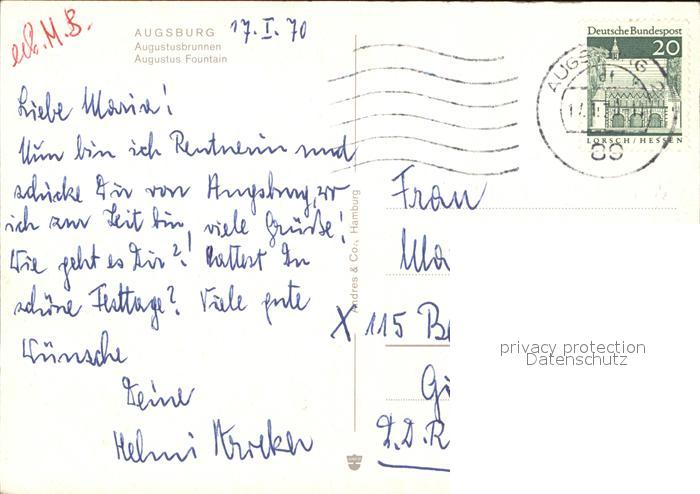 erl. M.B.
AUGSBURG
Augustusbrunnen
Augustus Fountain
17.I.70
Liebe Maria!
Nun bin ich Rentnerin und
schicke Dir von Augsburg, wo
ich zur Zeit bin, viele Grüße!
Wie geht es Dir?! Hattest Du
schöne Festtage? Viele gute
Wünsche
Deine
Helmi
Andres & Co., Hamburg
Deutsche Bundespost
20
LORSCH/HESSEN
AUGSBURG
89
Frau
Ma
X 115 B
G
D.D.R
privacy protection
Datenschutz